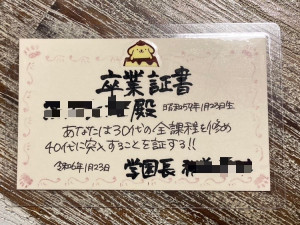 卒業証書
殿 昭和57年1月23日生
あなたは30代の全課程を修め
40代に突入することを証する!!
令和6年1月23日 学園長